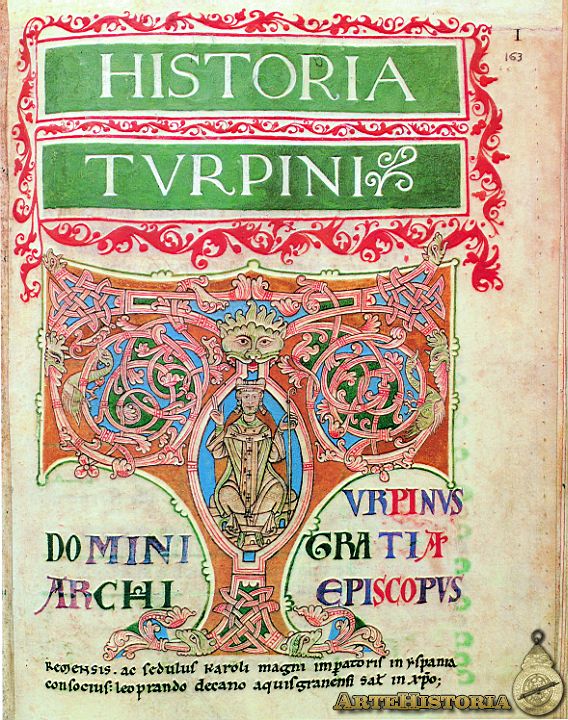 HISTORIA
I
163
TVRPINI
TVRPINVS
DOMINI GRATIA
ARCHI EPISCOPVS
Remensis. ac sedulus Karoli magni impatoris in yspania
consocius: leoprando decano aquisgranensi sał in xpo;
ARTEHISTORIA